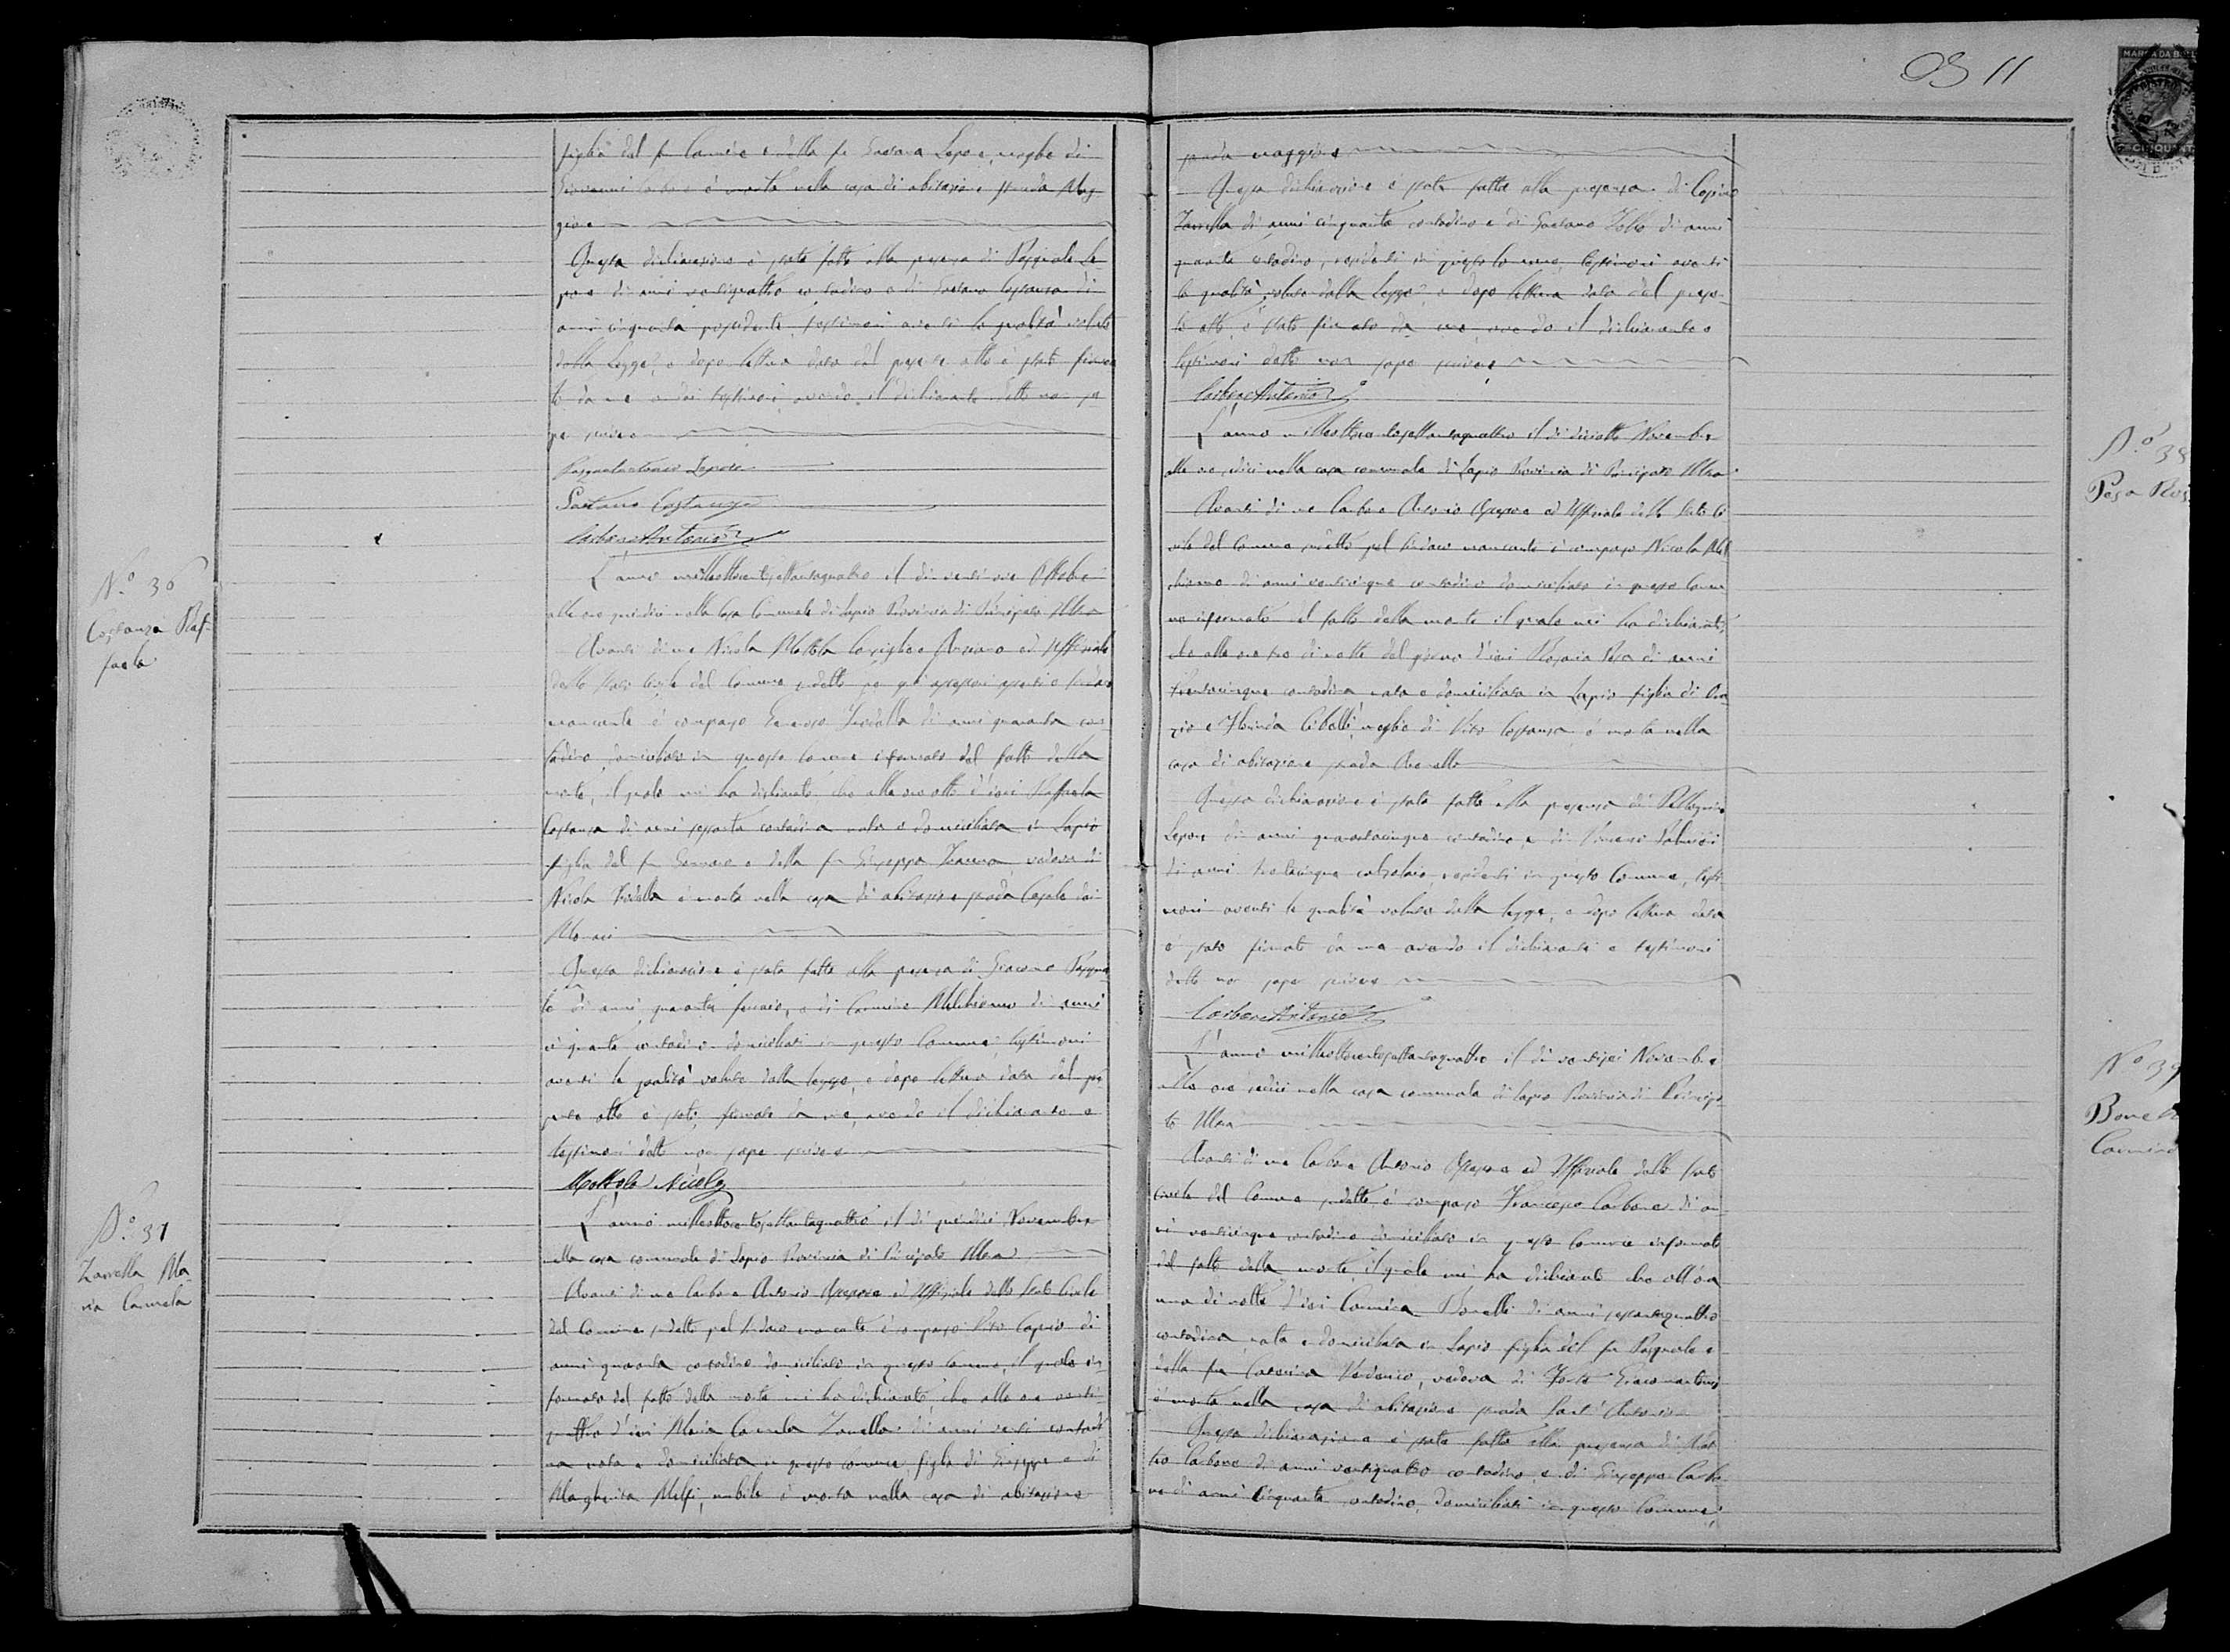 figlia del fu Carmine e della fu Gaetana Lepore, moglie di
Giovanni è morta nella casa di abitazione strada Mag
giore
Questa dichiarazione è stata fatta alla presenza di Pasquale Le
pore di anni ventiquattro contadino e di Gaetano Costanza di
anni cinquanta possidente testimoni aventi le qualità volute
dalla Legge, e dopo lettura data del presente atto è stato firma
to da me e dai testimoni avendo il dichiarante detto non sa
per scrivere
Pasqualantonio Lepore
Gaetano Costanza
Carbone Antonio
N.° 36
Costanza Raf-
faela
L'anno milleottocentosettantaquattro il dì ventinove Ottobre
alle ore quindici nella Casa Comunale di Lapio Provincia di Principato Ultra
Avanti di me Nicola Mottola Consigliere Anziano ed Uffiziale
dello Stato Civile del Comune sudetto per gli assessori assenti e Sindaco
mancante è comparso di anni quaranta con
tadino domiciliato in questo Comune informato dal fatto della
morte, il quale mi ha dichiarato, che alle ore otto d'ieri Raffaela
Costanza di anni sessanta contadina nata e domiciliata in Lapio
figlia del fu Gennaro e della fu Giuseppa vedova di
Nicola è morta nella casa di abitazione strada Casale dei
Monaci
Questa dichiarazione è stata fatta alla presenza di Giacomo
di anni quaranta e di Carmine Melchionno di anni
cinquanta contadino domiciliati in questo Comune, testimoni
aventi le qualità volute dalla legge, e dopo lettura data del pre
sente atto è stato firmato da me, avendo il dichiarante e
testimoni detto non saper scrivere
Mottola Nicola
N.° 37
Zarrella Ma-
ria Carmela
L'anno milleottocentosettantaquattro il dì quindici Novembre
nella casa comunale di Lapio Provincia di Principato Ultra
Avanti di me Carbone Antonio Assessore ed Uffiziale dello Stato Civile
del Comune sudetto pel Sindaco mancante è comparso Vito Caprio di
anni quaranta contadino domiciliato in questo Comune, il quale in
formato del fatto della morte mi ha dichiarato, che alle ore venti
quattro d'ieri Maria Carmela Zarrella di anni venti contadi
na nata e domiciliata in questo Comune figlia di Giuseppe e di
Margherita Melfi, nubile è morta nella casa di abitazione
11
MARCA DA BOLLO
strada maggiore
Questa dichiarazione è stata fatta alla presenza di
Zarrella di anni cinquanta contadino e di Gaetano di anni
quaranta contadino, residenti in questo Comune, testimoni aventi
le qualità volute dalla Legge, e dopo lettura data del presen
te atto è stato firmato da me avendo il dichiarante e
testimoni detto non saper scrivere
Carbone Antonio
N.° 38
Pesa Ros
L'anno milleottocentosettantaquattro il dì diciotto Novembre
alle ore sedici nella casa comunale di Lapio Provincia di Principato Ultra
Avanti di me Carbone Antonio Assessore ed Uffiziale dello Stato Ci
vile del Comune sudetto pel Sindaco mancante è comparso Nicola Mel
chionno di anni venticinque contadino domiciliato in questo Comu
ne informato del fatto della morte il quale mi ha dichiarato,
che alle ore tre di notte del giorno d'ieri Rosaria Pesa di anni
trentacinque contadina nata e domiciliata in Lapio figlia di Ora
zio e Florinda Cibelli, moglie di Vito Costanza è morta nella
casa di abitazione strada
Questa dichiarazione è stata fatta alla presenza di Pellegrino
Lepore di anni quarantacinque contadino, e di Vincenzo
di anni trentacinque calzolaio, residenti in questo Comune, testi
moni aventi le qualità volute dalla legge, e dopo lettura data
è stato firmato da me avendo il dichiarante e testimoni
detto non saper scrivere
Carbone Antonio
N.° 39
Bonel
Carmina
L'anno milleottocentosettantaquattro il dì ventisei Novembre
alle ore sedici nella casa comunale di Lapio Provincia di Principa
to Ultra
Avanti di me Carbone Antonio Assessore ed Uffiziale dello Stato
Civile del Comune sudetto, è comparso Francesco Carbone di an
ni venticinque contadino domiciliato in questo Comune informato
del fatto della morte, il quale mi ha dichiarato che all'ora
una di notte d'ieri Carmina Bonelli di anni sessantaquattro
contadina nata e domiciliata in Lapio figlia del fu Pasquale e
della fu Caterina vedova di Forte Giacomantonio
è morta nella casa di abitazione strada Sant'Antonio
Questa dichiarazione è stata fatta alla presenza di
Carbone di anni ventiquattro contadino, e di Giuseppe Carbo
ne di anni cinquanta contadino, domiciliati in questo Comune,